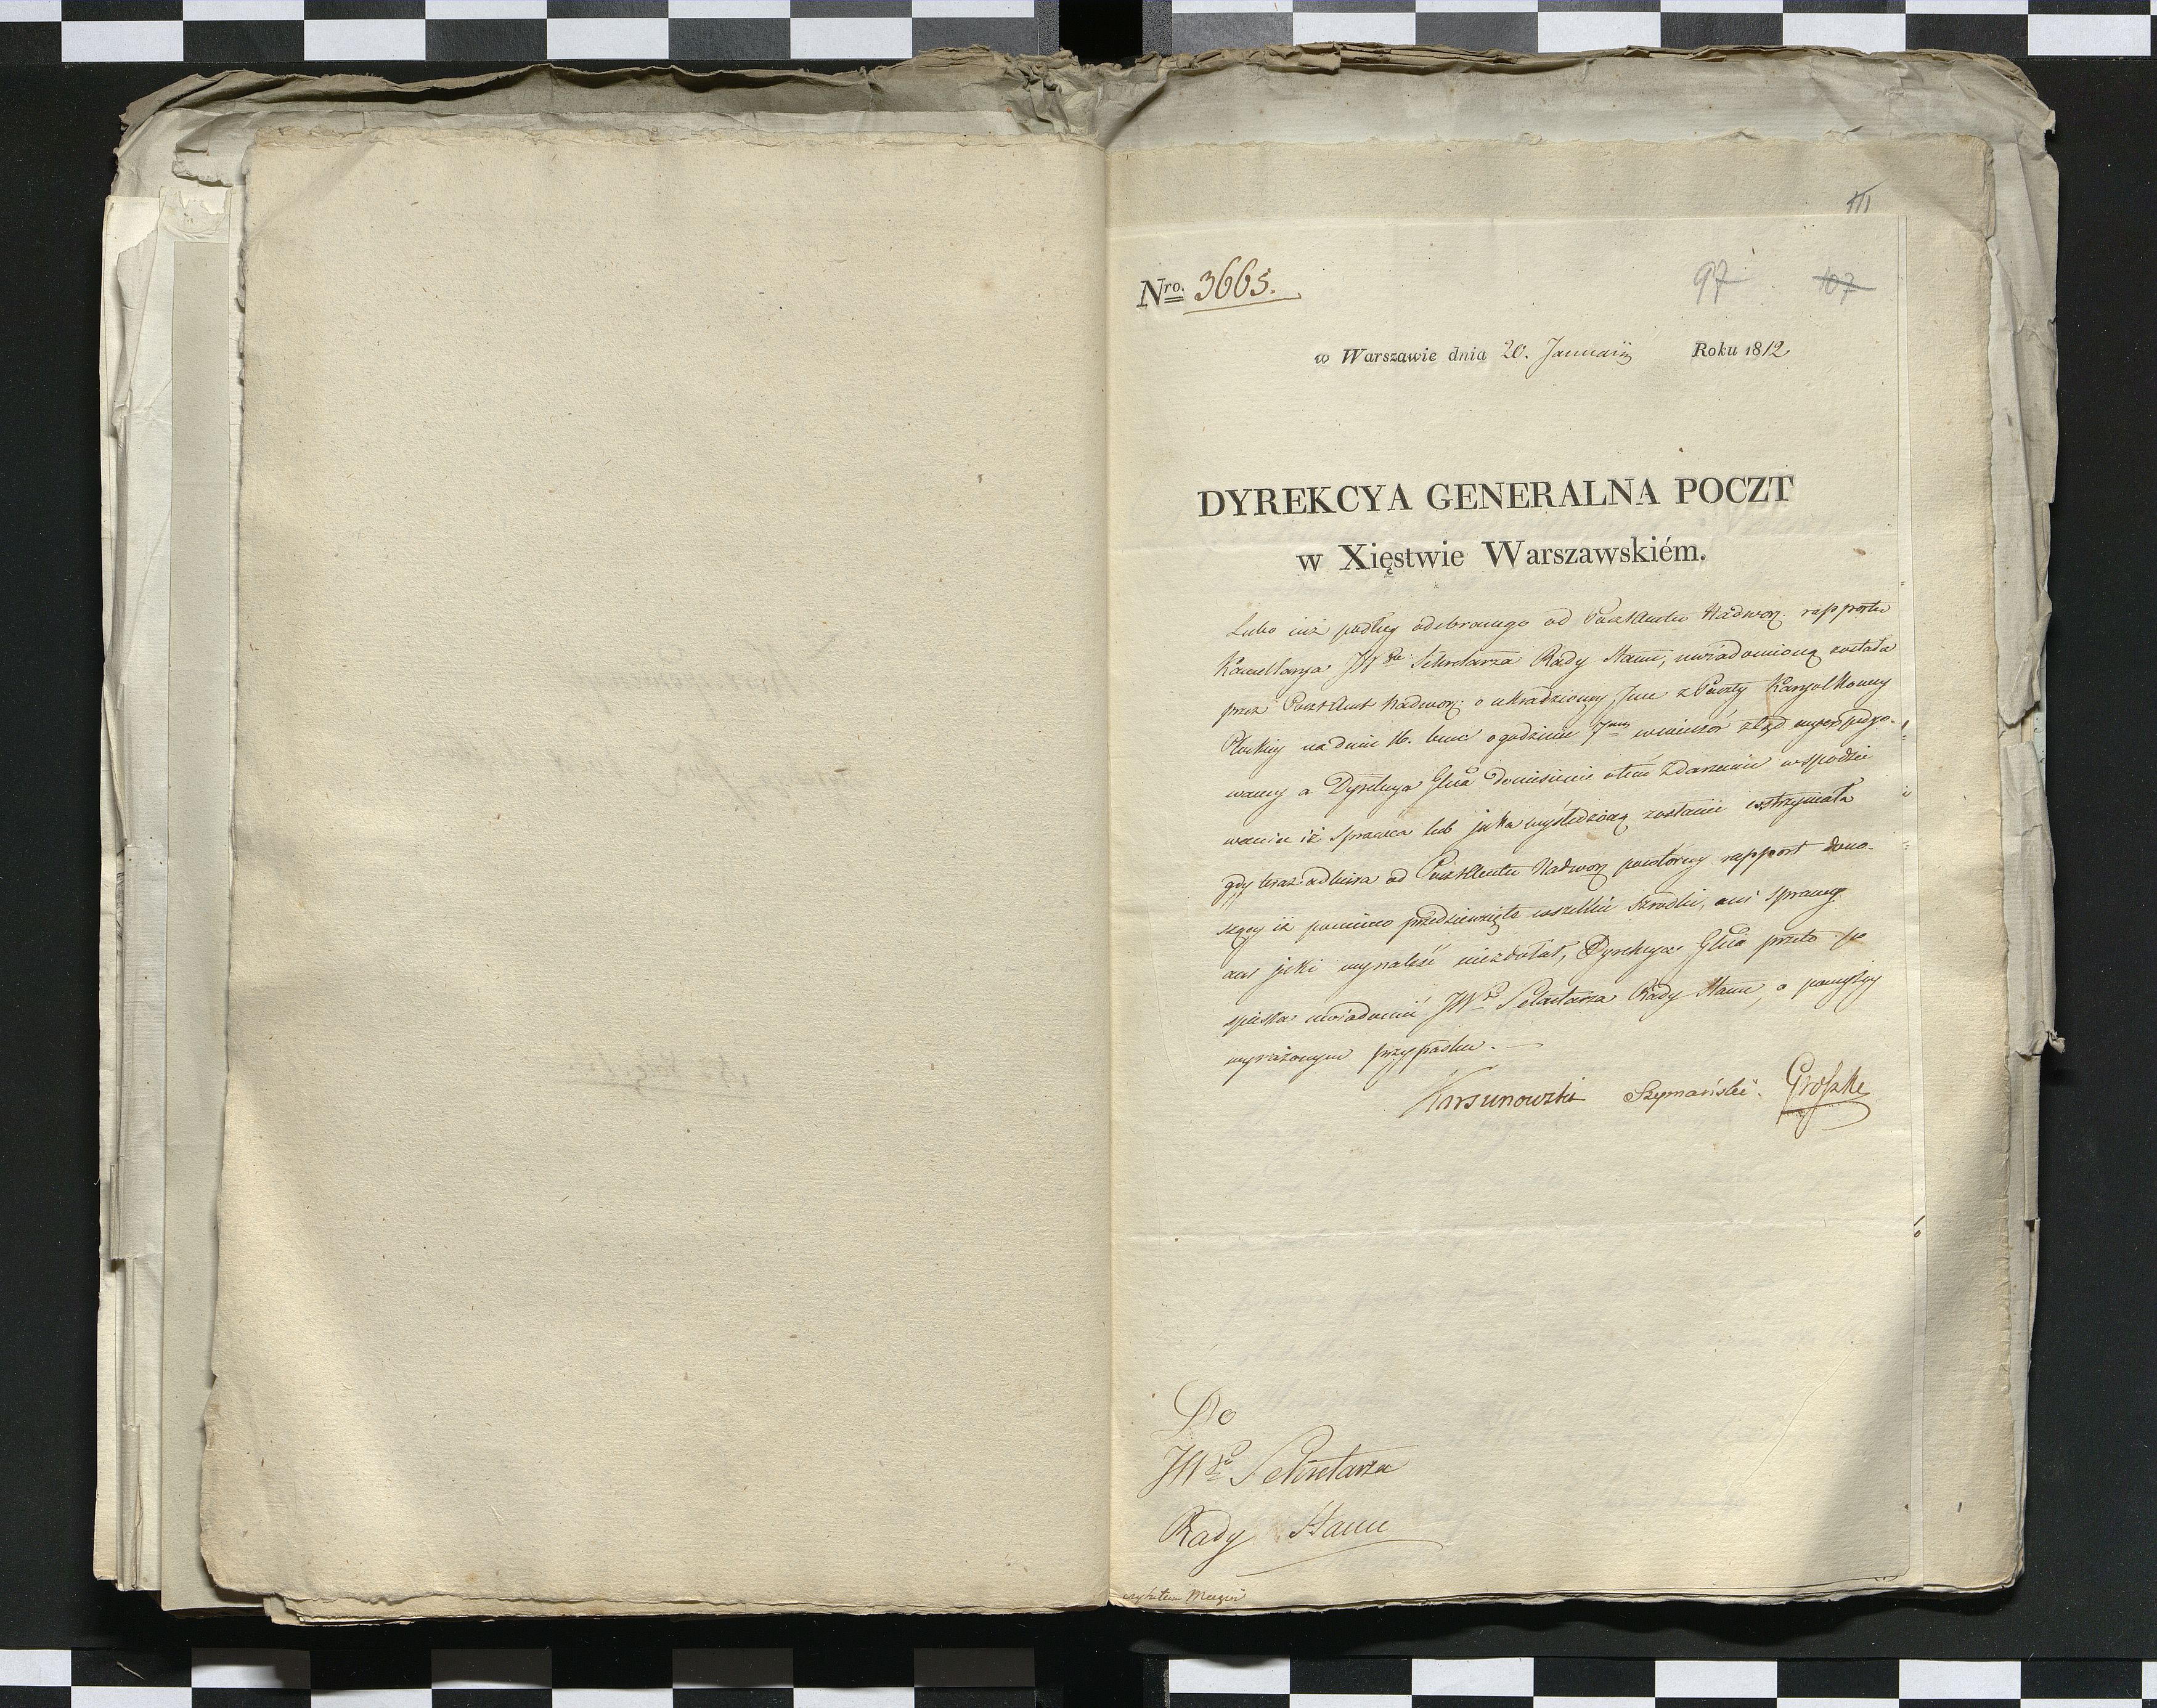 111
Nro. 3665.
97 107
w Warszawie dnia 20. Januarij Roku 1812
DYREKCYA GENERALNA POCZT
w Xięstwie Warszawskiém.
Lubo iuż podług odebranego od PocztAmtu Nadwor. rapportu
Kancellarya JW Sekretarza Rady Stanu, uwiadomioną została
przez PocztAmt Nadwor. o ukradzioney z Poczty Karyolkowey
Płockiey na dniu 16. o godzinie 7 wieczór ztąd wyexpedyo-
waney a Dyrekcya Glna doniesienie o tém zdarzeniu w spodzie
waniu iż sprawca lub wyśledzioną zostanie wstrzymała
gdy teraz odbiera od PocztAmtu Nadwor powtórny rapport dono-
szący iż pomimo przedsięwzięte wszelkie szrodki, ani sprawcy
ani wynaleść niezdołał, Dyrekcya Glna przeto po
spiesza uwiadomić JWP Sekretarza Rady Stanu, o powyżey
wyrażonym przypadku.
Szymański. Groszke
Do
JWP Sekretarza
Rady Stanu